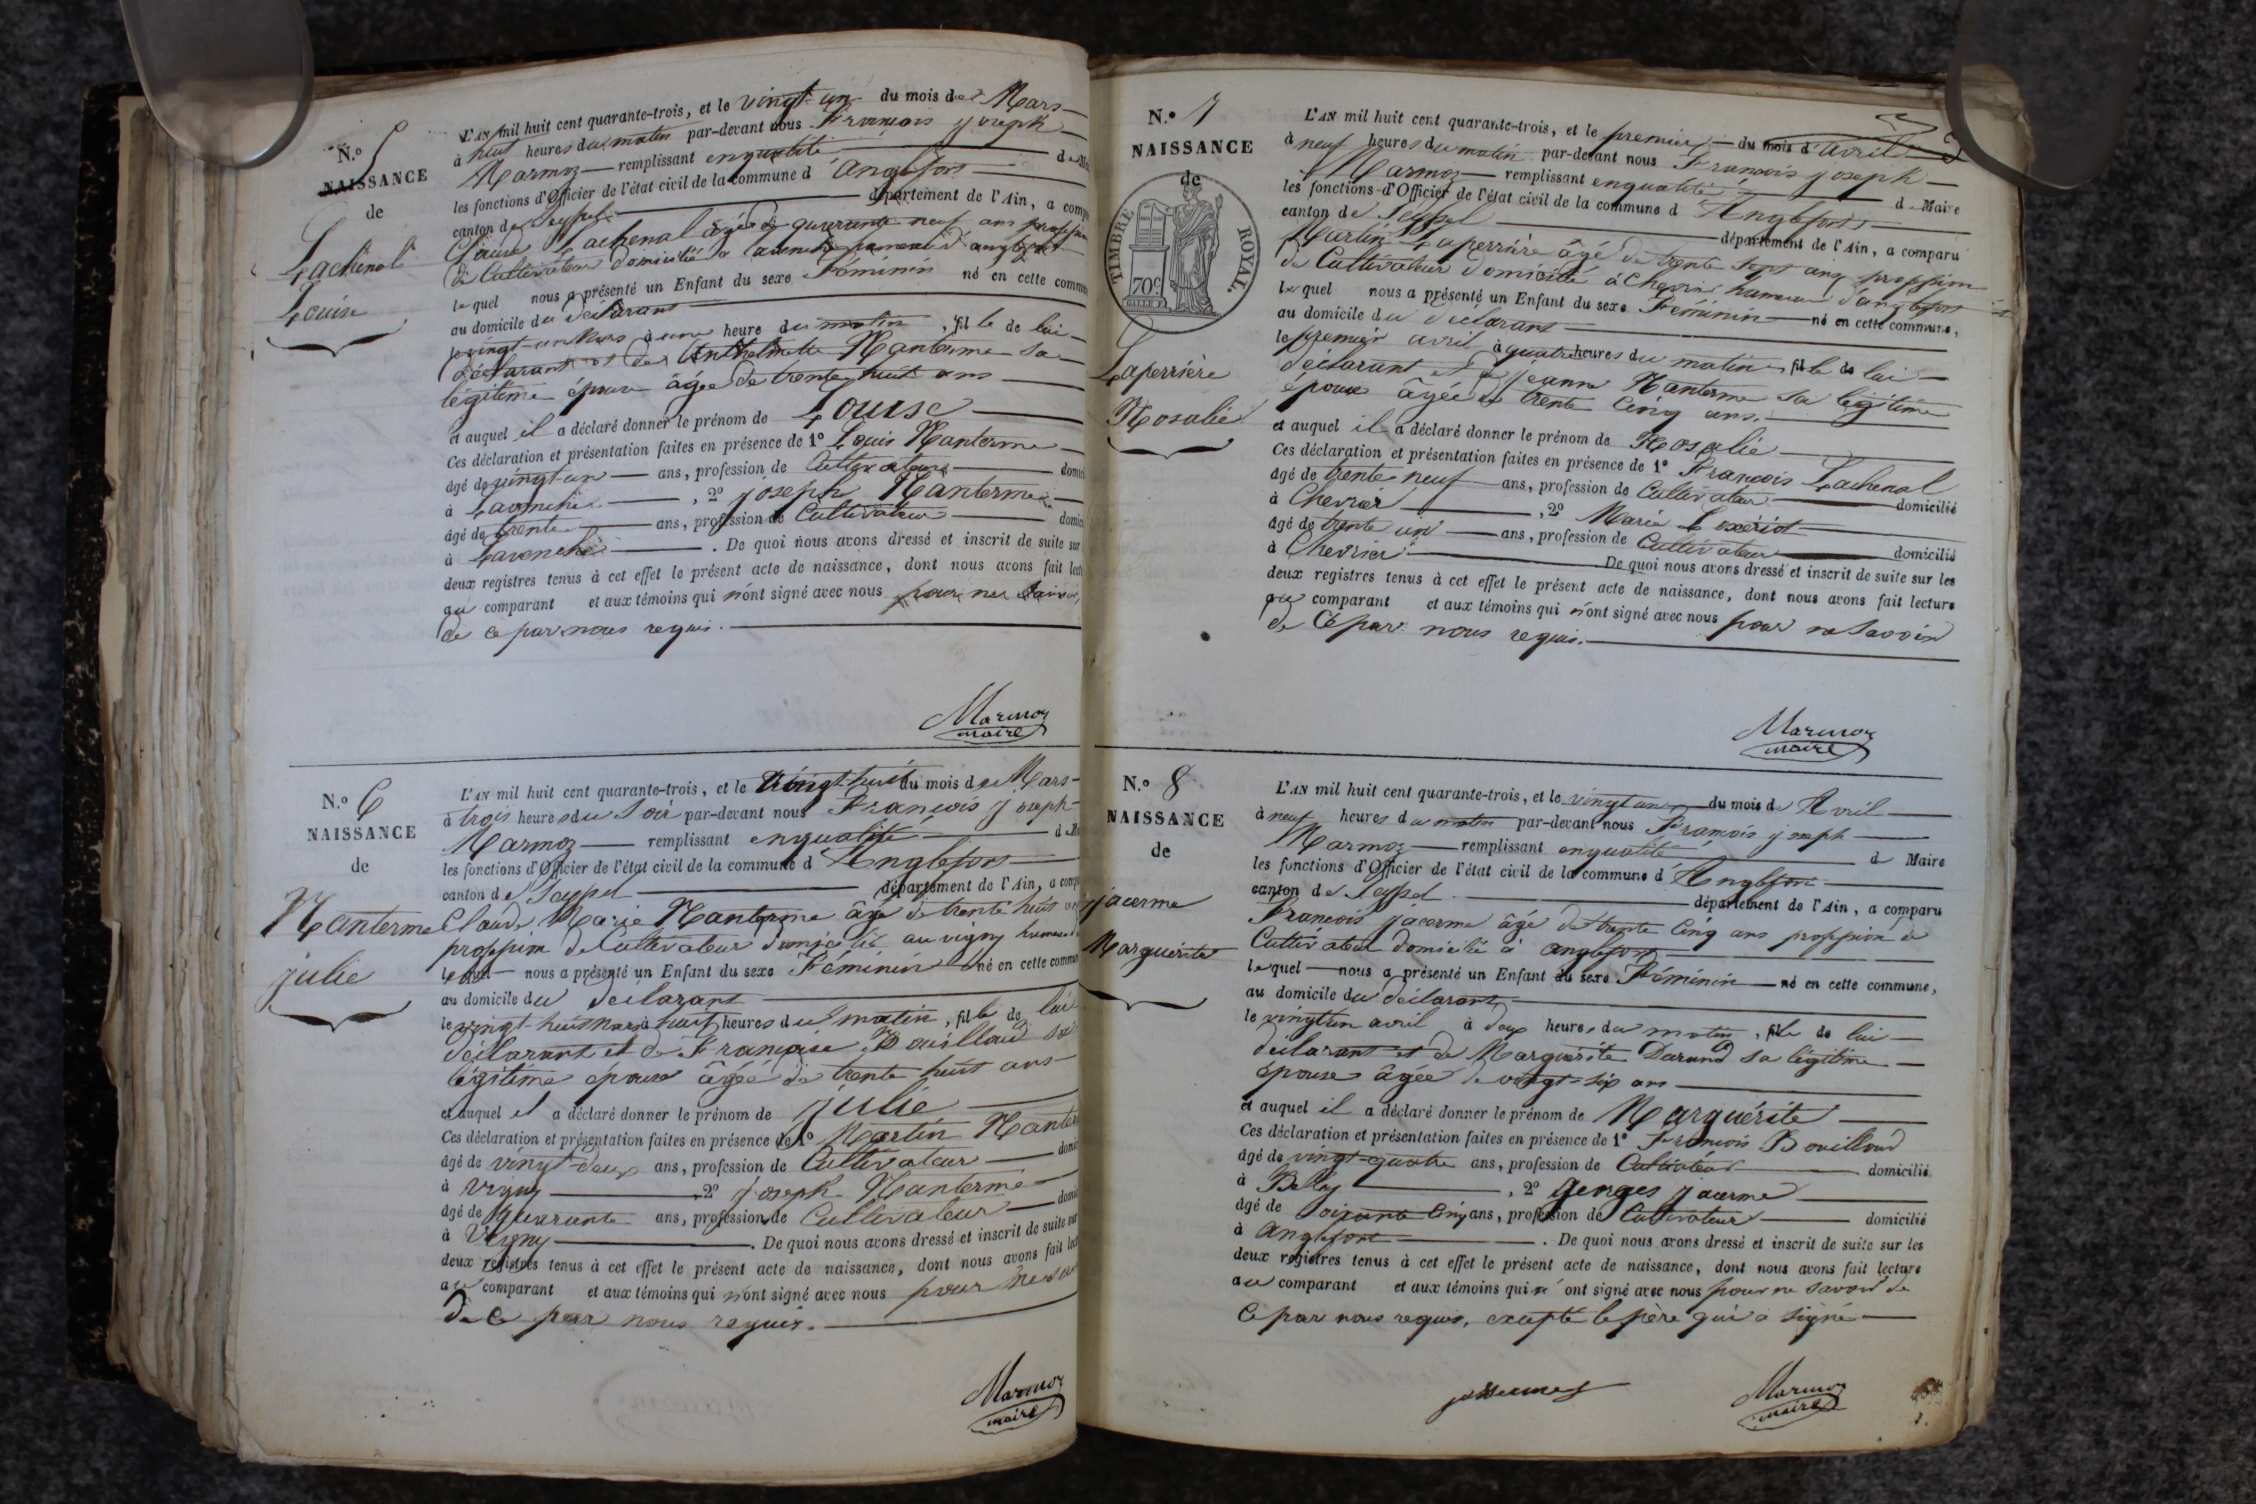 N.º 5
NAISSANCE
de
Lachenal
Louise
L'AN mil huit cent quarante-trois, et le vingt-un du mois de Mars
à huit heures du matin par-devant nous François joseph
Marmoz remplissant enqualité de
les fonctions d'Officier de l'état civil de la commune d'Anglefort
canton de Seyssel département de l'Ain, a
Lachenal âgé de quarante neuf ans
de Cultivateur domicilié à hameau d'anglefort
lequel nous a présenté un Enfant du sexe Féminin né en cette
au domicile du déclarant
le vingt-un Mars à une heure du matin, fille de lui
déclarant et de Anthelmette Nanterme sa
légitime épouse âgée de trente huit ans
et auquel il a déclaré donner le prénom de Louise
Ces déclaration et présentation faites en présence de 1º Louis Nanterme
âgé de vingt-un ans, profession de Cultivateur
à , 2º joseph Nanterme
âgé de trente ans, profession de Cultivateur
à Lavanche . De quoi nous avons dressé et inscrit de suite sur
deux registres tenus à cet effet le présent acte de naissance, dont nous avons fait
au comparant et aux témoins qui n'ont signé avec nous pour ne savoir,
de ce par nous requis.
Marmoz
maire
N.º 6
NAISSANCE
de
Nanterme
julie
L'AN mil huit cent quarante-trois, et le vingt-huit du mois de Mars
à trois heures du Soir par-devant nous François joseph
Marmoz remplissant enqualité d
les fonctions d'Officier de l'état civil de la commune d'Anglefort
canton de Seyssel département de l'Ain, a
Claude Marie Nanterme âgé de trente huit
profession de Cultivateur domicilié au vigny
lequel nous a présenté un Enfant du sexe Féminin né en cette
au domicile du déclarant
le vingt-huit Mars à huit heures du matin, fille de lui
déclarant et de Françoise Bouilloud sa
légitime épouse âgée de trente huit ans
et auquel il a déclaré donner le prénom de julie
Ces déclaration et présentation faites en présence de 1º Martin
âgé de vingt-deux ans, profession de Cultivateur
à Vigny , 2º Joseph Nanterme
âgé de quarante ans, profession de Cultivateur
à Vigny . De quoi nous avons dressé et inscrit de suite sur
deux registres tenus à cet effet le présent acte de naissance, dont nous avons fait
au comparant et aux témoins qui n'ont signé avec nous pour ne
de ce par nous requis.
Marmoz
maire
N.º 7
NAISSANCE
de
TIMBRE ROYAL.
70c
Laperrière
Rosalie
L'AN mil huit cent quarante-trois, et le premier du mois d'avril
à neuf heures du matin par-devant nous François joseph
Marmoz remplissant enqualité de Maire
les fonctions d'Officier de l'état civil de la commune d'Anglefort
canton de Seyssel département de l'Ain, a comparu
Martin Laperrière âgé de trente sept ans profession
de Cultivateur domicilié à Chevrier hameau d'anglefort
lequel nous a présenté un Enfant du sexe Féminin né en cette commune,
au domicile du déclarant
le premier avril à quatre heures du matin, fille de lui
déclarant et de jeanne Nanterme sa légitime
épouse âgée de trente cinq ans.
et auquel il a déclaré donner le prénom de Rosalie
Ces déclaration et présentation faites en présence de 1º François Lachenal
âgé de trente neuf ans, profession de Cultivateur domicilié
à Chevrier , 2º Marie
âgé de trente un ans, profession de Cultivateur domicilié
à Chevrier De quoi nous avons dressé et inscrit de suite sur les
deux registres tenus à cet effet le présent acte de naissance, dont nous avons fait lecture
au comparant et aux témoins qui n'ont signé avec nous pour ne savoir
de Ce par nous requis.
Marmoz
maire
N.º 8
NAISSANCE
de
jacerme
Marguérite
L'AN mil huit cent quarante-trois, et le vingt un du mois de Avril
à neuf heures du matin par-devant nous François joseph
Marmoz remplissant enqualité de Maire
les fonctions d'Officier de l'état civil de la commune d'Anglefort
canton de Seyssel département de l'Ain, a comparu
François jacerme âgé de trente cinq ans profession de
Cultivateur domicilié à anglefort
lequel nous a présenté un Enfant du sexe Féminin né en cette commune,
au domicile du déclarant
le vingt un avril à deux heures du matin, fille de lui
déclarant et de Marguérite Durand sa légitime
épouse âgée de vingt-six ans
et auquel il a déclaré donner le prénom de Marguérite
Ces déclaration et présentation faites en présence de 1º François Bouilloud
âgé de vingt-quatre ans, profession de Cultivateur domicilié
à , 2º georges jacerme
âgé de soixante cinq ans, profession de Cultivateur domicilié
à anglefort . De quoi nous avons dressé et inscrit de suite sur les
deux registres tenus à cet effet le présent acte de naissance, dont nous avons fait lecture
au comparant et aux témoins qui n'ont signé avec nous pour ne savoir de
Ce par nous requis, excepté le père qui a signé
Marmoz
maire